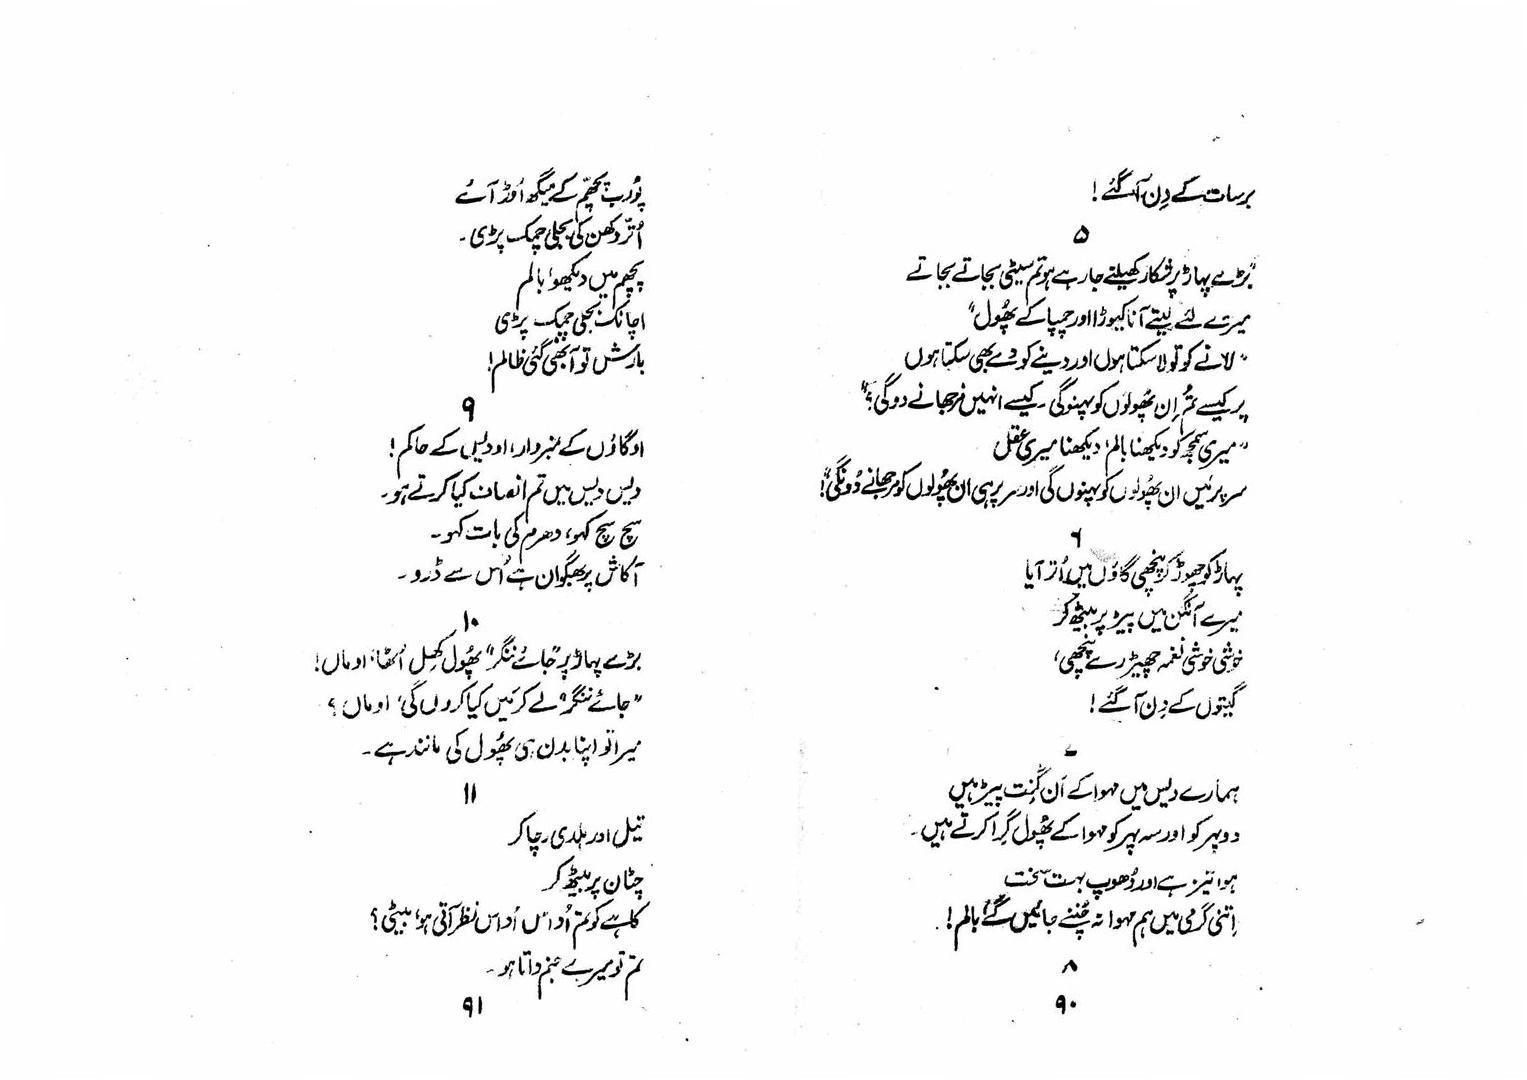 برسات کے دِن آ گئے!
۵
"بڑے پہاڑ پر شکار کھیلنے جا رہے ہو تم سیٹی بجاتے بجاتے
میرے لئے لیتے آنا کیوڑا اور چمپا کے پھُول"
"لانے کو تو لا سکتا ہوں اور دینے کو دے بھی سکتا ہوں
پر کیسے تم اِن پھُولوں کو پہنو گی۔ کیسے انہیں مرجھانے دو گی؟"
"میری سمجھ کو دیکھنا بالم، دیکھنا میری عقل
سر پر مَیں ان پھُولوں کو پہنوں گی اور سر پر ہی ان پھُولوں کو مرجھانے دُونگی"!
۶
پہاڑ کو چھوڑ کر پنچھی گاؤں میں اُتر آیا
میرے آنگن میں پیڑ پر بیٹھ کر
خوشی خوشی نغمہ چھیڑ رے پنچھی،
گیتوں کے دِن آ گئے!
۷
ہمارے دیس میں مہوا کے اَن گِنت پیڑ ہیں
دوپہر کو اور سہ پہر کو مہوا کے پھُول گِرا کرتے ہیں۔
ہوا تیز ہے اور دُھوپ بہت سخت
اِتنی گرمی میں ہم مہوا نہ چُننے جائیں گے بالم!
۸
۹۰
پُورب پچھّم کے میگھ اُوڑ آئے
اُتّر دکھن کی بجلی چمک پڑی۔
پچھم میں دیکھو، بالم
اچانک بجلی چمک پڑی
بارش تو آ بھی گئی ظالم!
۹
او گاؤں کے نمبردار، او دیس کے حاکم!
دیس دیس میں تم انصاف کیا کرتے ہو۔
سچ سچ کہو، دھرم کی بات کہو۔
آکاش پر بھگوان ہے اُس سے ڈرو۔
۱۰
بڑے پہاڑ پر "جائے ننگر" پھُول کھِل اُٹھا، او ماں!
"جائے ننگر" لے کر مَیں کیا کروں گی، او ماں؟
میرا تو اپنا بدن ہی پھُول کی مانند ہے۔
۱۱
تیل اور ہلدی رچا کر
چٹان پر بیٹھ کر
کاہے کو تم اُداس اُداس نظر آتی ہو، بیٹی؟
تم تو میرے جنم داتا ہو۔
۹۱